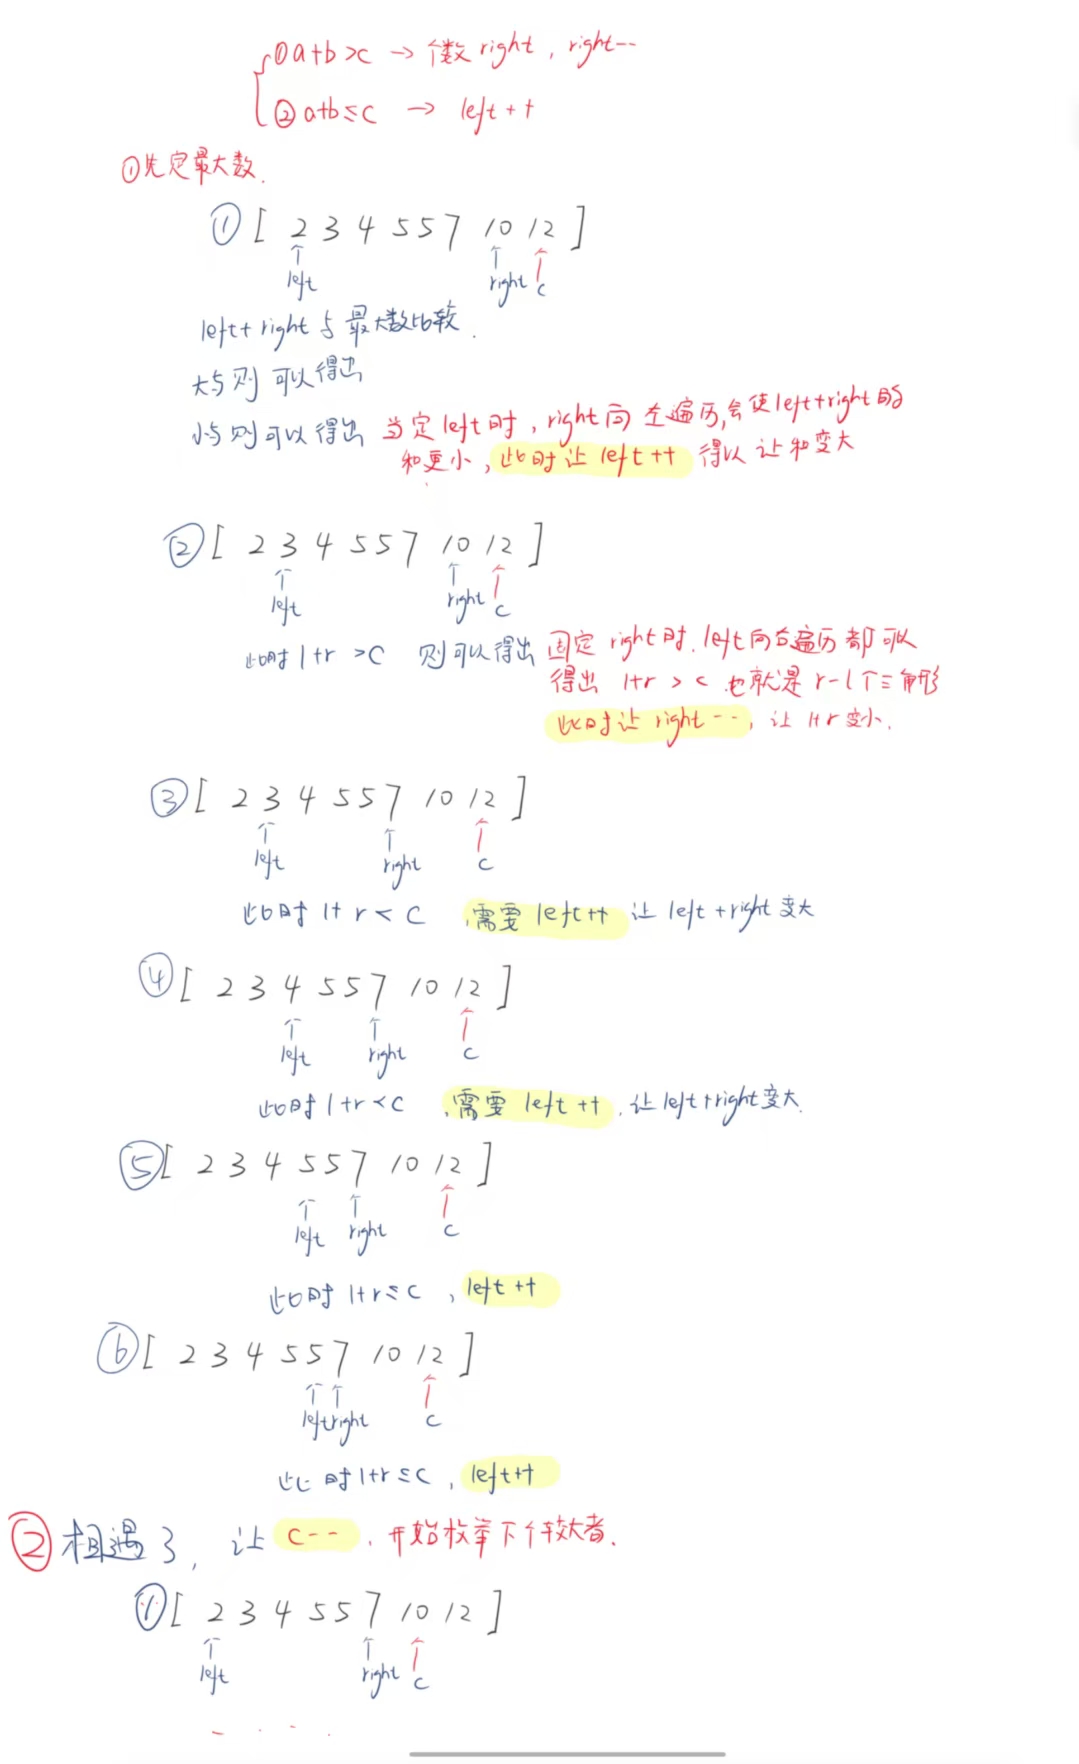 ①a+b>c → 个数right，right--
②a+b≤c → left++
①先定最大数.
① [ 2 3 4 5 5 7 10 12 ]
left right c
left+right与最大数比较.
大与则可以得出
小与则可以得出 当定left时，right向左遍历,会使left+right的
和更小，此时让left++ 得以让和变大
② [ 2 3 4 5 5 7 10 12 ]
left right c
此时l+r>c 则可以得出 固定right时.left向右遍历都可以
得出l+r>c 也就是r-l个三角形
此时让right--，让l+r变小.
③ [ 2 3 4 5 5 7 10 12 ]
left right c
此时l+r<c ,需要left++ 让left+right变大
④ [ 2 3 4 5 5 7 10 12 ]
left right c
此时l+r<c ,需要left++ ,让left+right变大.
⑤ [ 2 3 4 5 5 7 10 12 ]
left right c
此时l+r≤c , left++
⑥ [ 2 3 4 5 5 7 10 12 ]
left right c
此时l+r≤c , left++
② 相遇了，让c--，开始枚举下个较大者.
① [ 2 3 4 5 5 7 10 12 ]
left right c